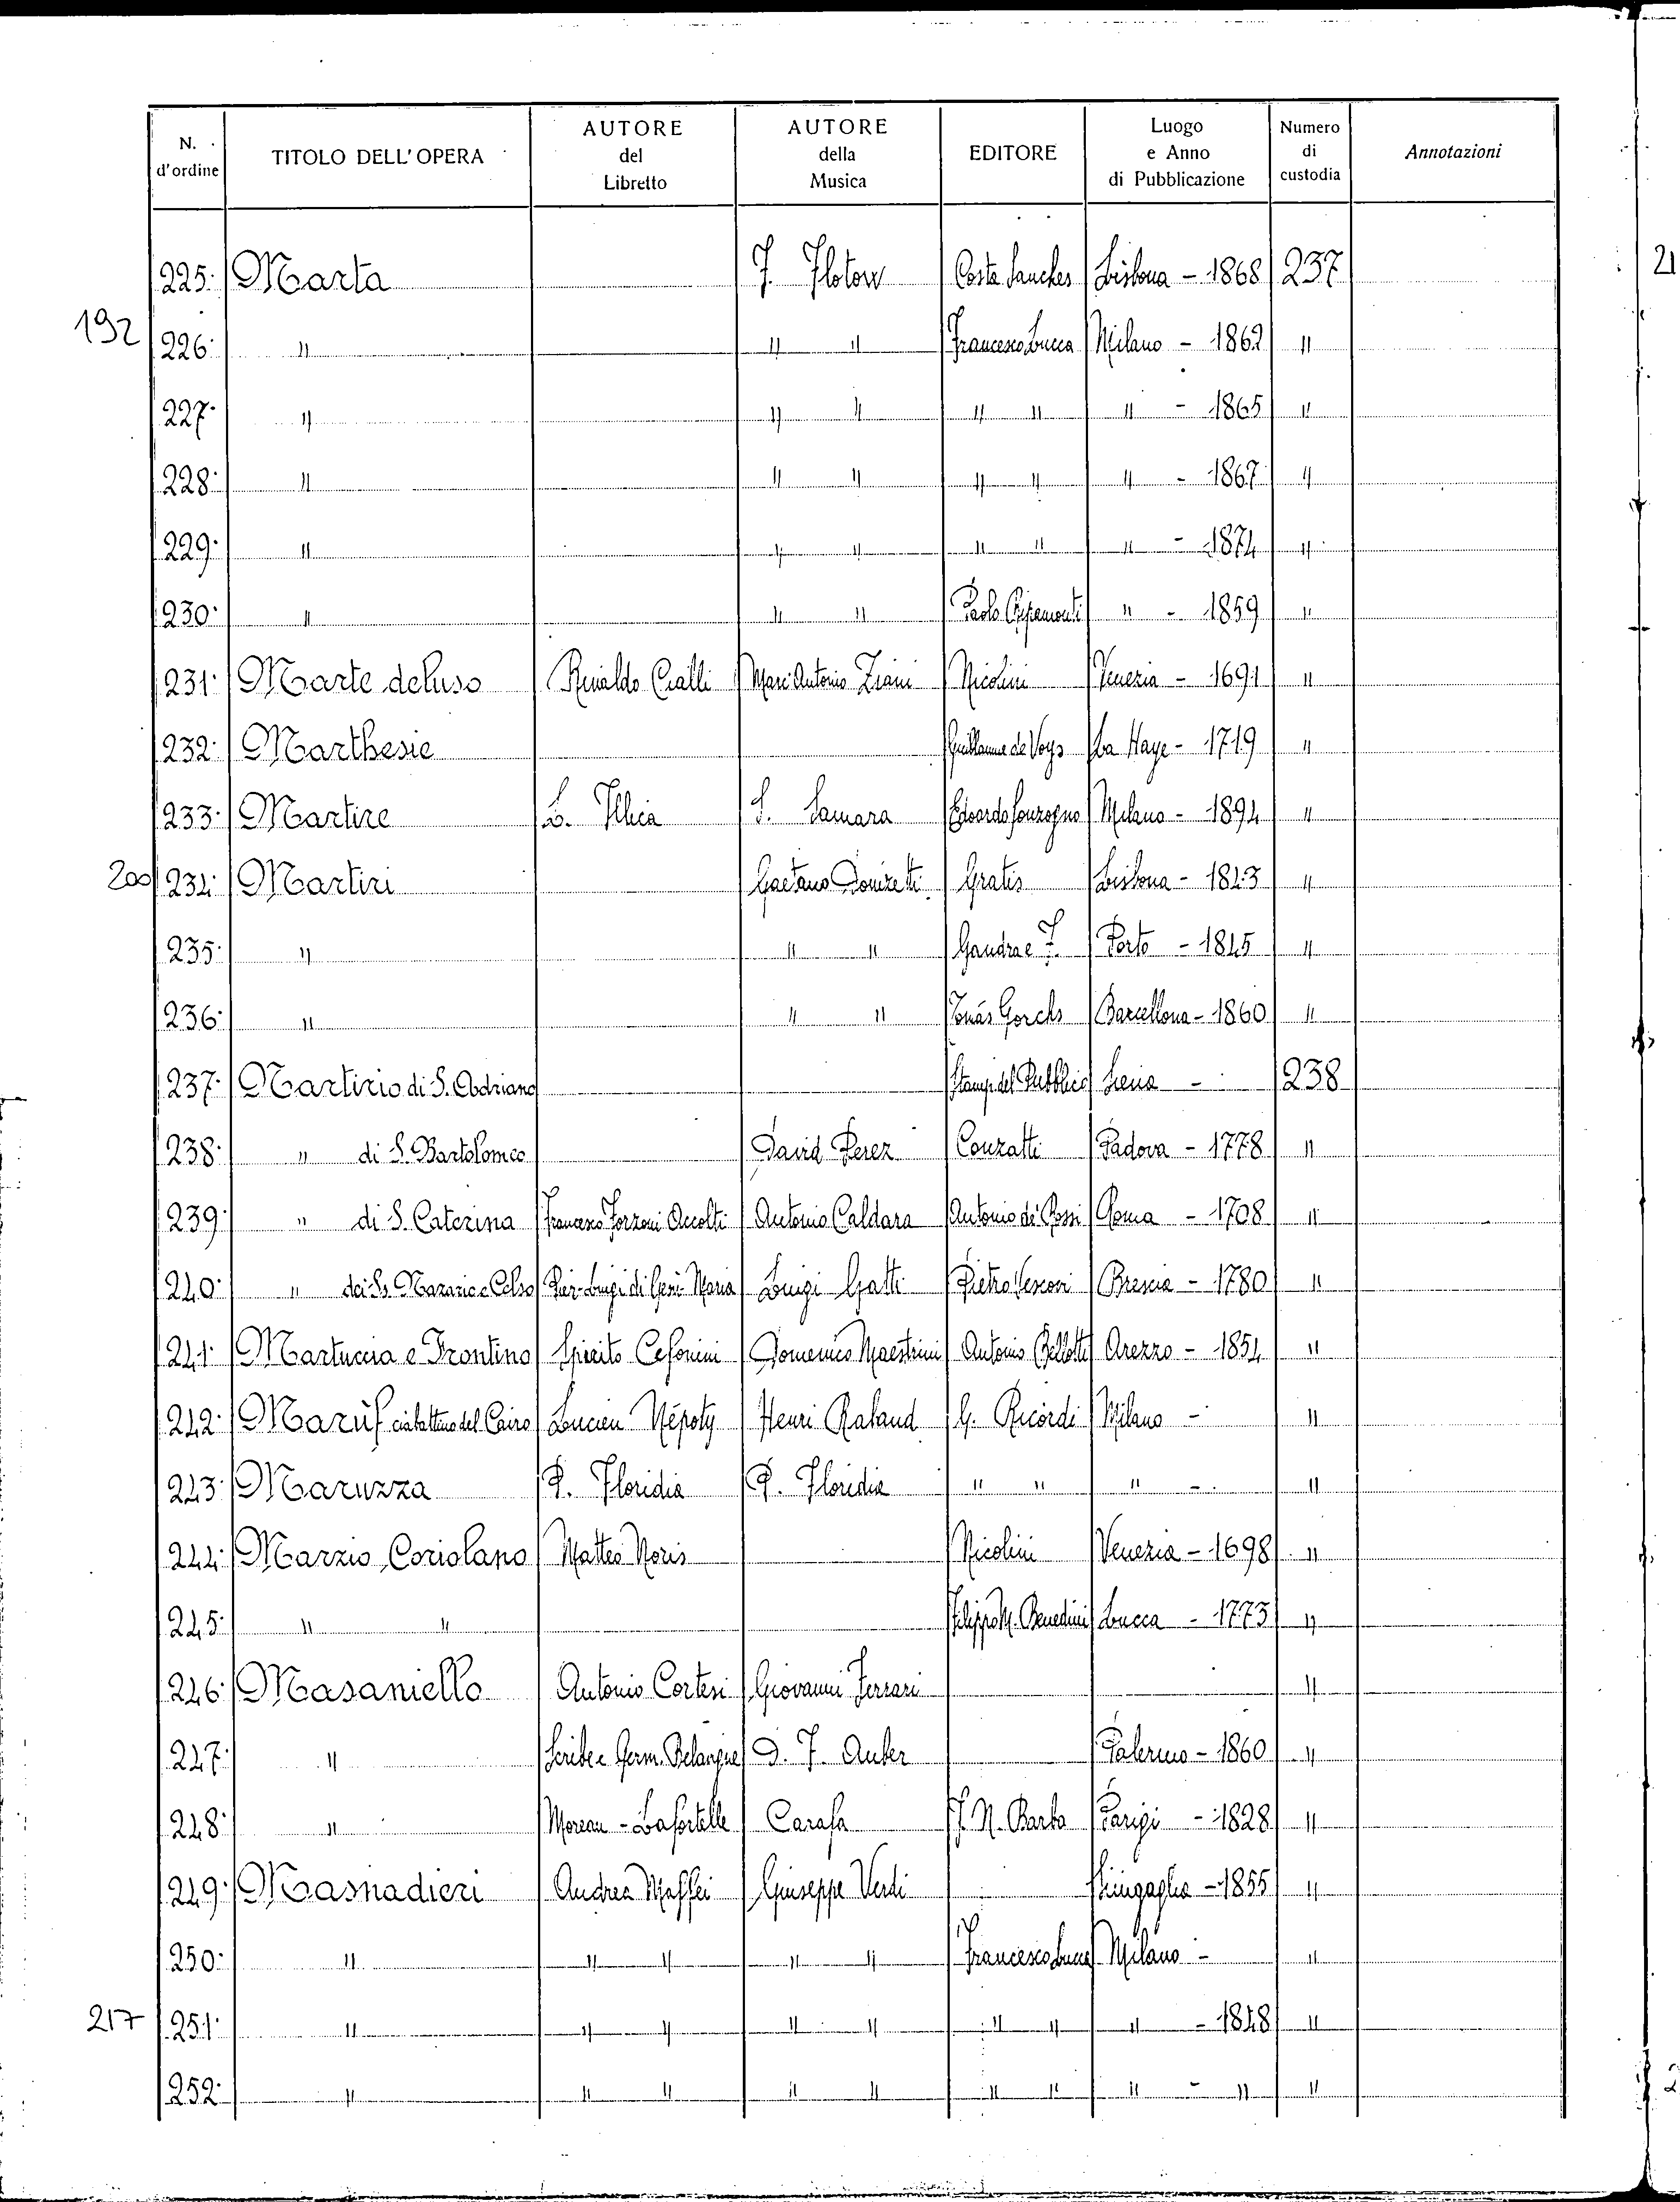 N. d'ordine TITOLO DELL'OPERA AUTORE del Libretto AUTORE della Musica EDITORE Luogo e Anno di Pubblicazione Numero di custodia Annotazioni
225. Marta F. Flotow Costa Sanches Lisbona - 1868 237 21
192 226. " " " Francesco Lucca Milano - 1862 "
227. " " " " " " - 1865 "
228. " " " " " " - 1867 "
229. " " " " " " - 1874 "
230. " " " Paolo Ripamonti " - 1859 "
231. Marte deluso Rinaldo Cialli Marc'Antonio Ziani Nicolini Venezia - 1691 "
232. Marthesie Guillaume de Voys La Haye - 1719 "
233. Martire L. Illica S. Samara Edoardo Sonzogno Milano - 1894 "
200 234. Martiri Gaetano Donizetti Gratis Lisbona - 1843 "
235. " " " Gandra e F. Porto - 1845 "
236. " " " Tomás Gorchs Barcellona - 1860 "
237. Martirio di S. Adriano Stamp. del Pubblico Siena - 238
238. " di S. Bartolomeo David Perez Conzatti Padova - 1778 "
239. " di S. Caterina Francesco Forzoni Accolti Antonio Caldara Antonio de' Rossi Roma - 1708 "
240. " dei Ss. Nazario e Celso Pier-Luigi di Gesù Maria Luigi Gatti Pietro Vescovi Brescia - 1780 "
241. Martuccia e Frontino Spirito Cesonini Domenico Maestrini Antonio Bellotti Arezzo - 1854 "
242. Marùf ciabattino del Cairo Lucien Népoty Henri Rabaud G. Ricordi Milano - "
243. Maruzza P. Floridia P. Floridia " " " - "
244. Marzio Coriolano Matteo Noris Nicolini Venezia - 1698 "
245. " " Filippo M. Benedini Lucca - 1773 "
246. Masaniello Antonio Cortesi Giovanni Ferrari "
247. " Scribe e Germ. Delavigne D. F. Auber Palermo - 1860 "
248. " Moreau - Lafortelle Carafa J. N. Barba Parigi - 1828 "
249. Masnadieri Andrea Maffei Giuseppe Verdi Sinigaglia - 1855 "
250. " " " " " Francesco Lucca Milano - "
217 251. " " " " " " " " - 1848 "
252. " " " " " " " " - " "